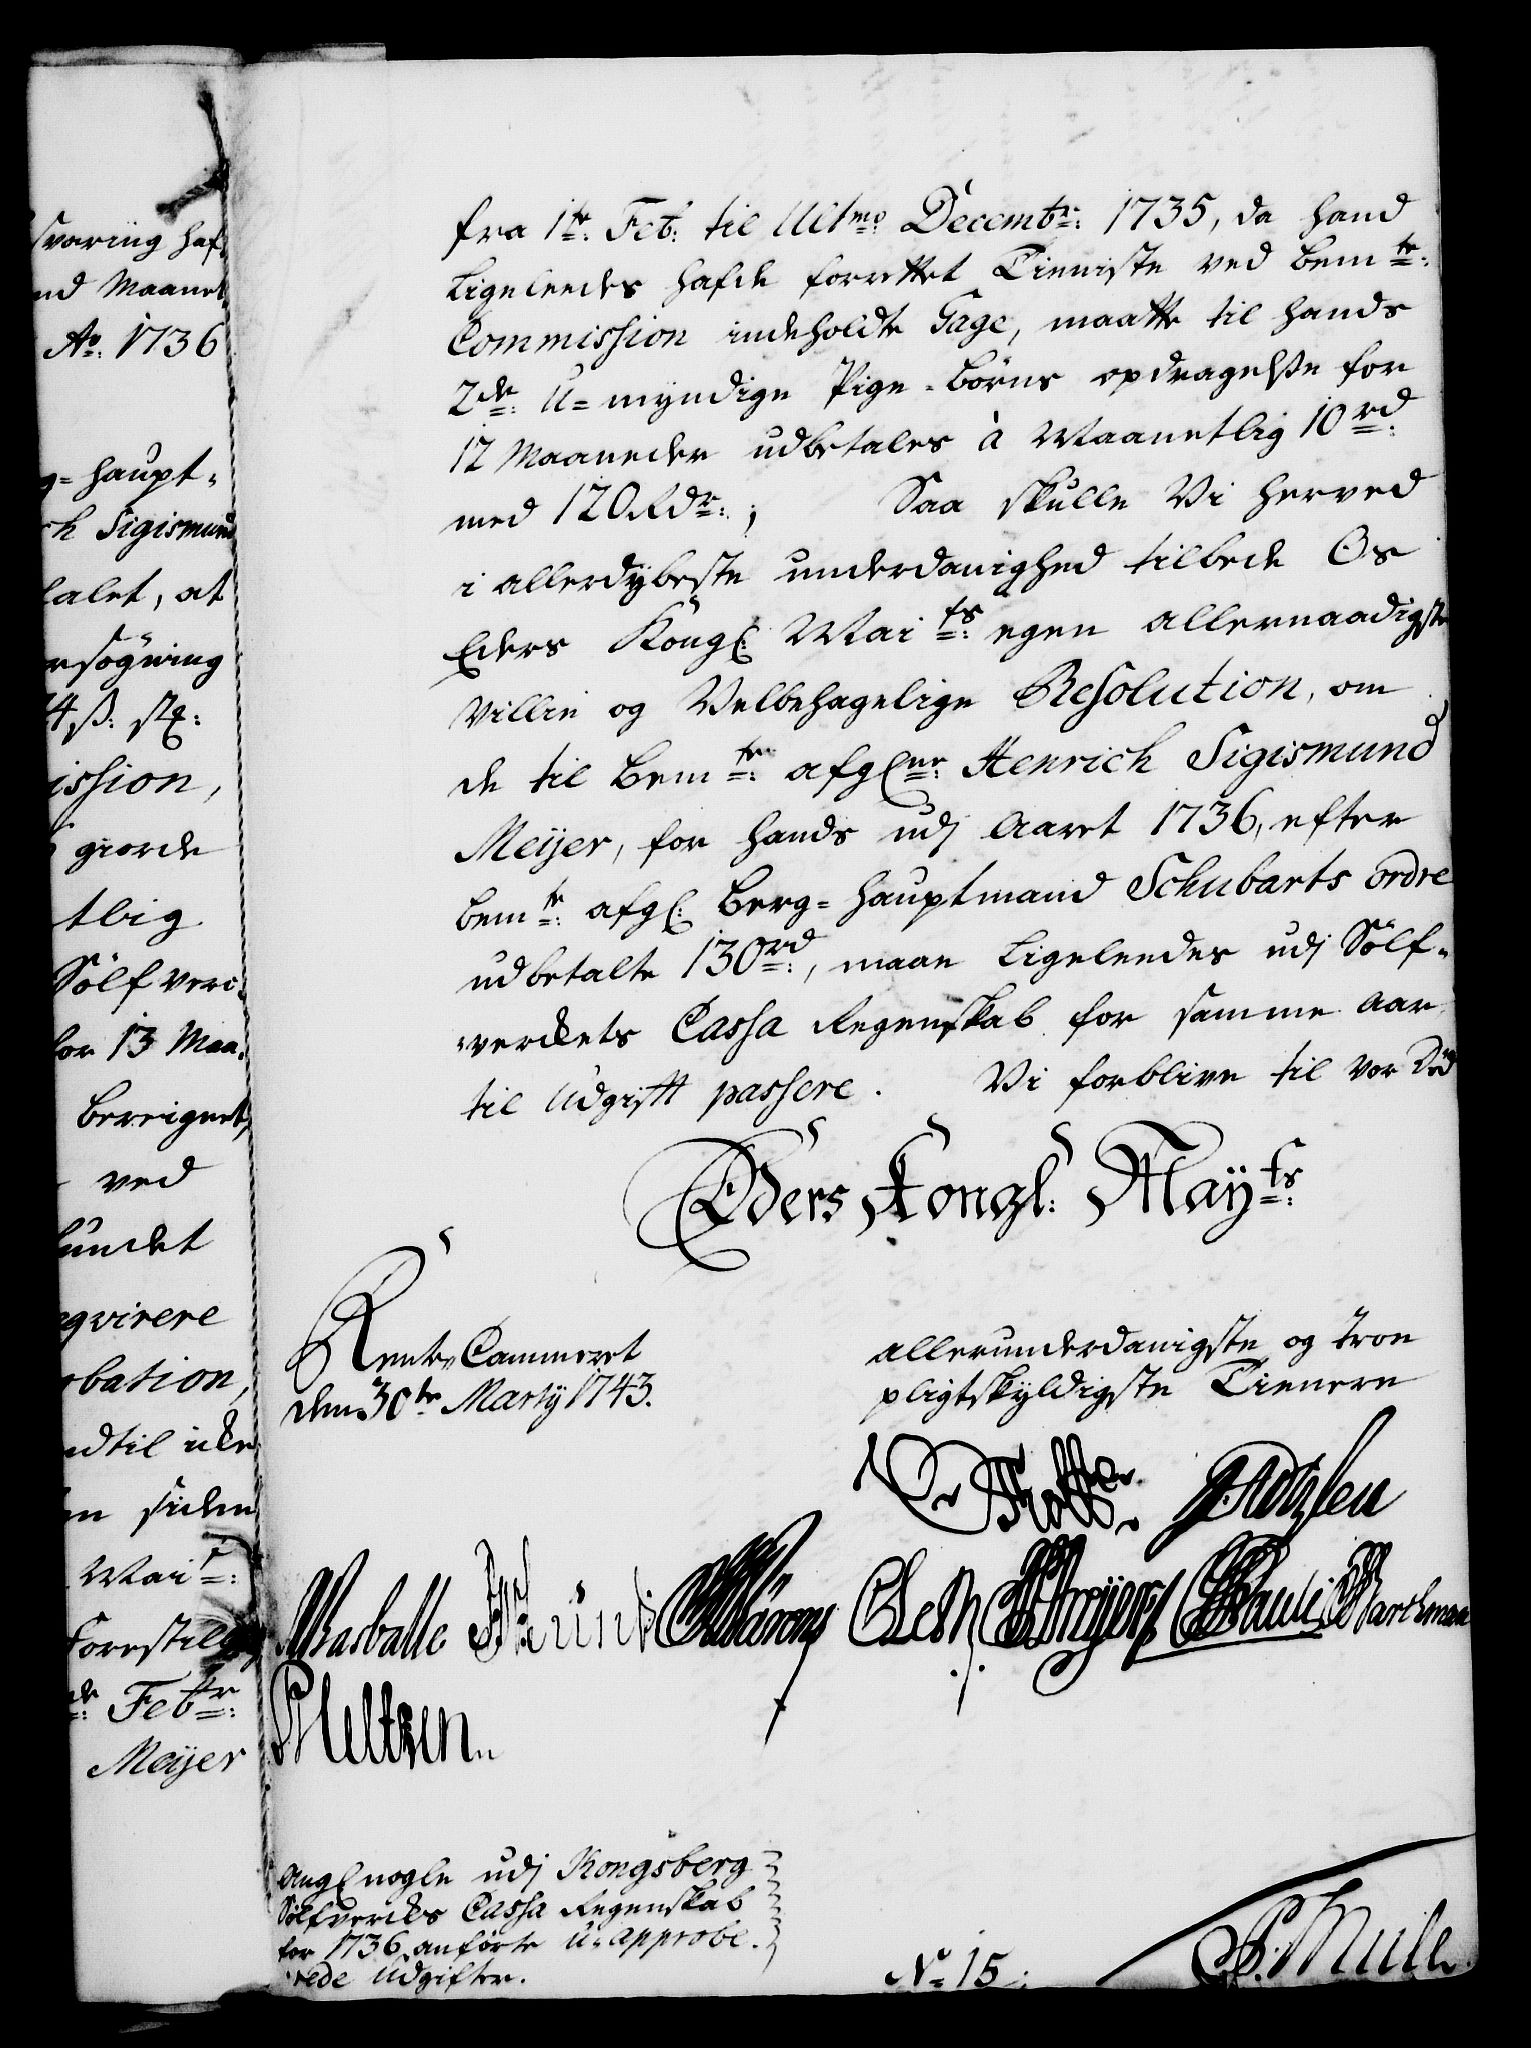 svaring haf
nd Maanet
Ao: 1736
g= haupt-
ch Sigismund
talet, at
ersøgning
74 ß: sk:
ission,
giorde
tlig
Sølfver-
for 13 Maa-
bereignet,
ved
fundet
eqvirere
obation,
ndtil icke
en siden
Maits:
Forestilling
de: Febtr:
Meijer
fra 1te: Feb: til Ultmo Decembr: 1735, da hand
ligeleedes hafde forrettet Tieniste ved bemte:
Commission indeholdte Gage, maatte til hands
2de: U=myndige Pige-Børns opdragelse for
12 Maaneder udbetales à Maanetlig 10 rd:
med 120 Rdr:; Saa skulle Vi herved
i allerdybeste underdanighed tilbede Os
Eders Kongl: Maits: egen allernaadigste
Villie og Velbehagelige Resolution, om
de til bemte: afgl:ne: Henrich Sigismund
Meijer, for hands udj Aaret 1736, efter
bemte: afgl: Berg=hauptmand Schubarts ordre
udbetalte 130 rd:, maae ligeleedes udj Sølf-
verckets Cassa Regenskab for samme Aar
til Udgift passere. Vi forblive til vor Død
Eders Kongl: Mayts:
Rente Cammeret
den 30te Martij 1743.
allerunderdanigste og troe
pligtskyldigste Tienere
Rasballe
Pauli
Barthman
Angl nogle udj Kongsberg
Sølfvercks Cassa Regenskab
for 1736 anførte U-approbe-
rede Udgifter.
No 15:
P: Mule